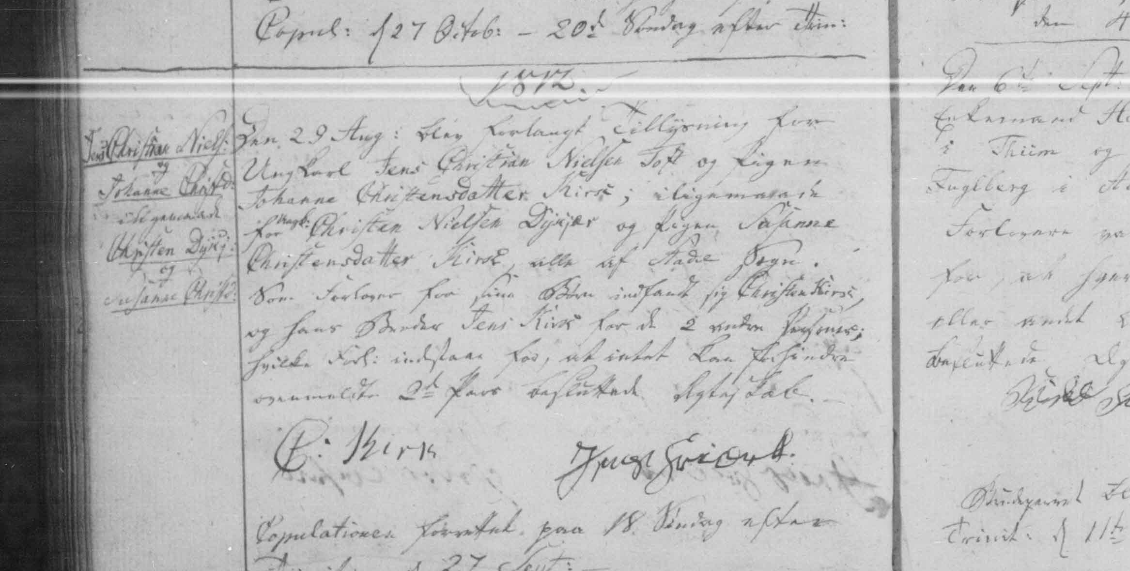 Copul: d 27 Octob: – 20de Søndag efter Trin:
1812.
Jens Christian Niels:
og
Johanne Christd:
iligemaade
Christen Dykj:
og
Susanne Christd:
Den 29 Aug: blev forlangt Tillysning for
Ungkarl Jens Christian Nielsen Toft og Pigen
Johanne Christensdatter Kirk, iligemaade
for Ungk: Christen Nielsen Dykjær og Pigen Susanne
Christensdatter Kirk, alle af Sogn.
Som Forlover for sine Børn indfandt sig Christen Kirk,
og hans Broder Jens Kirk for de 2 andre Personer;
hvilke Forl: indstaae for, at intet kan forhindre
ovenmeldte 2de Pars besluttede Ægteskab.
C: Kirk
Copulationen forrettet paa 18 Søndag efter
27 Sept:
den 4
Den 6te Sept:
Enkemand
i Thiim og
Fuglberg i
Forlovere
for, at
eller andet
besluttede
Brudeparret
Trinit: d 11te